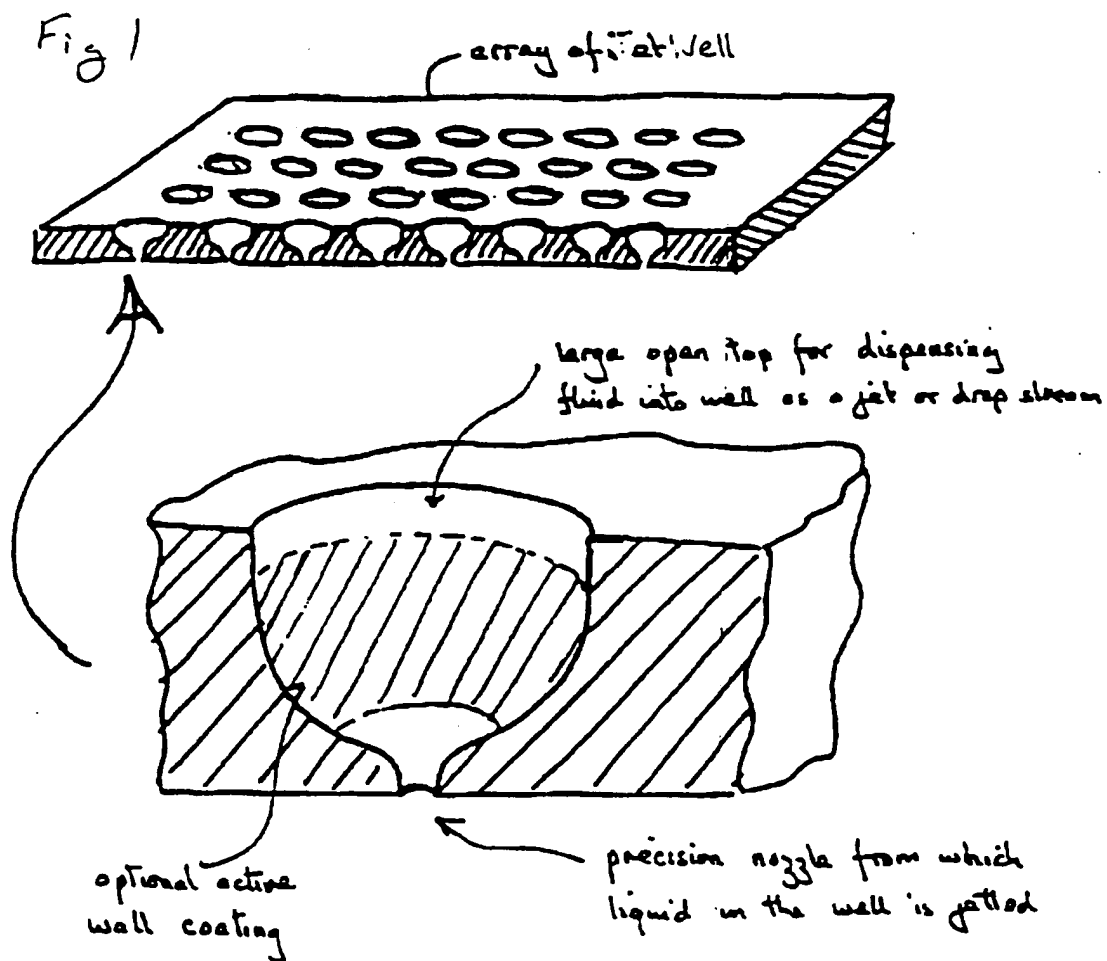 Fig 1
array of 'Jet' Well
large open top for dispensing
fluid into well as a jet or drop stream
optional active
wall coating
precision nozzle from which
liquid in the well is jetted